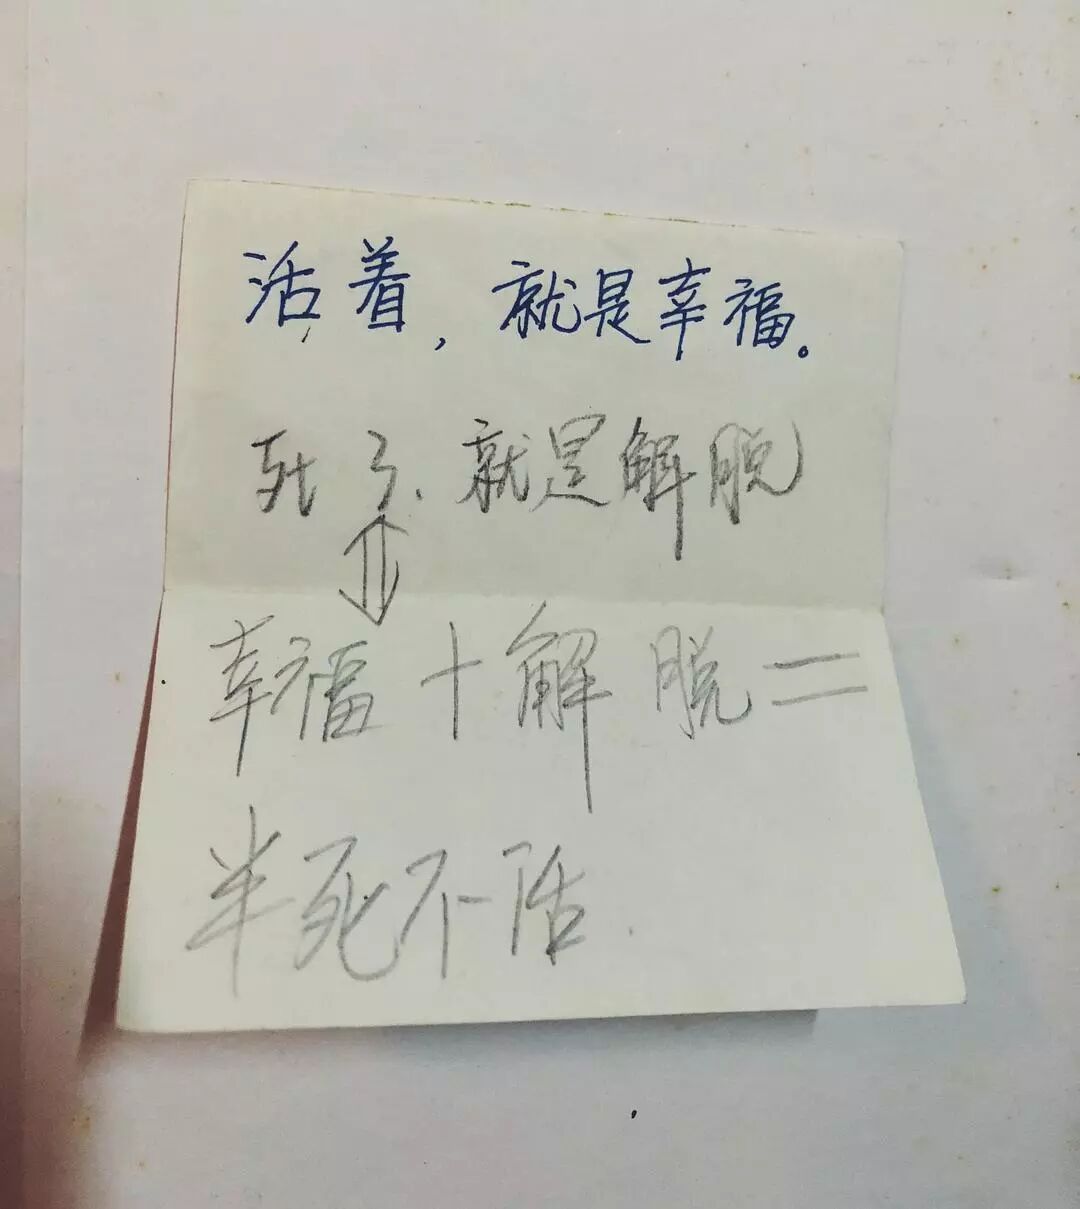 活着，就是幸福。
死了、就是解脱
⇅
幸福+解脱=
半死不活.